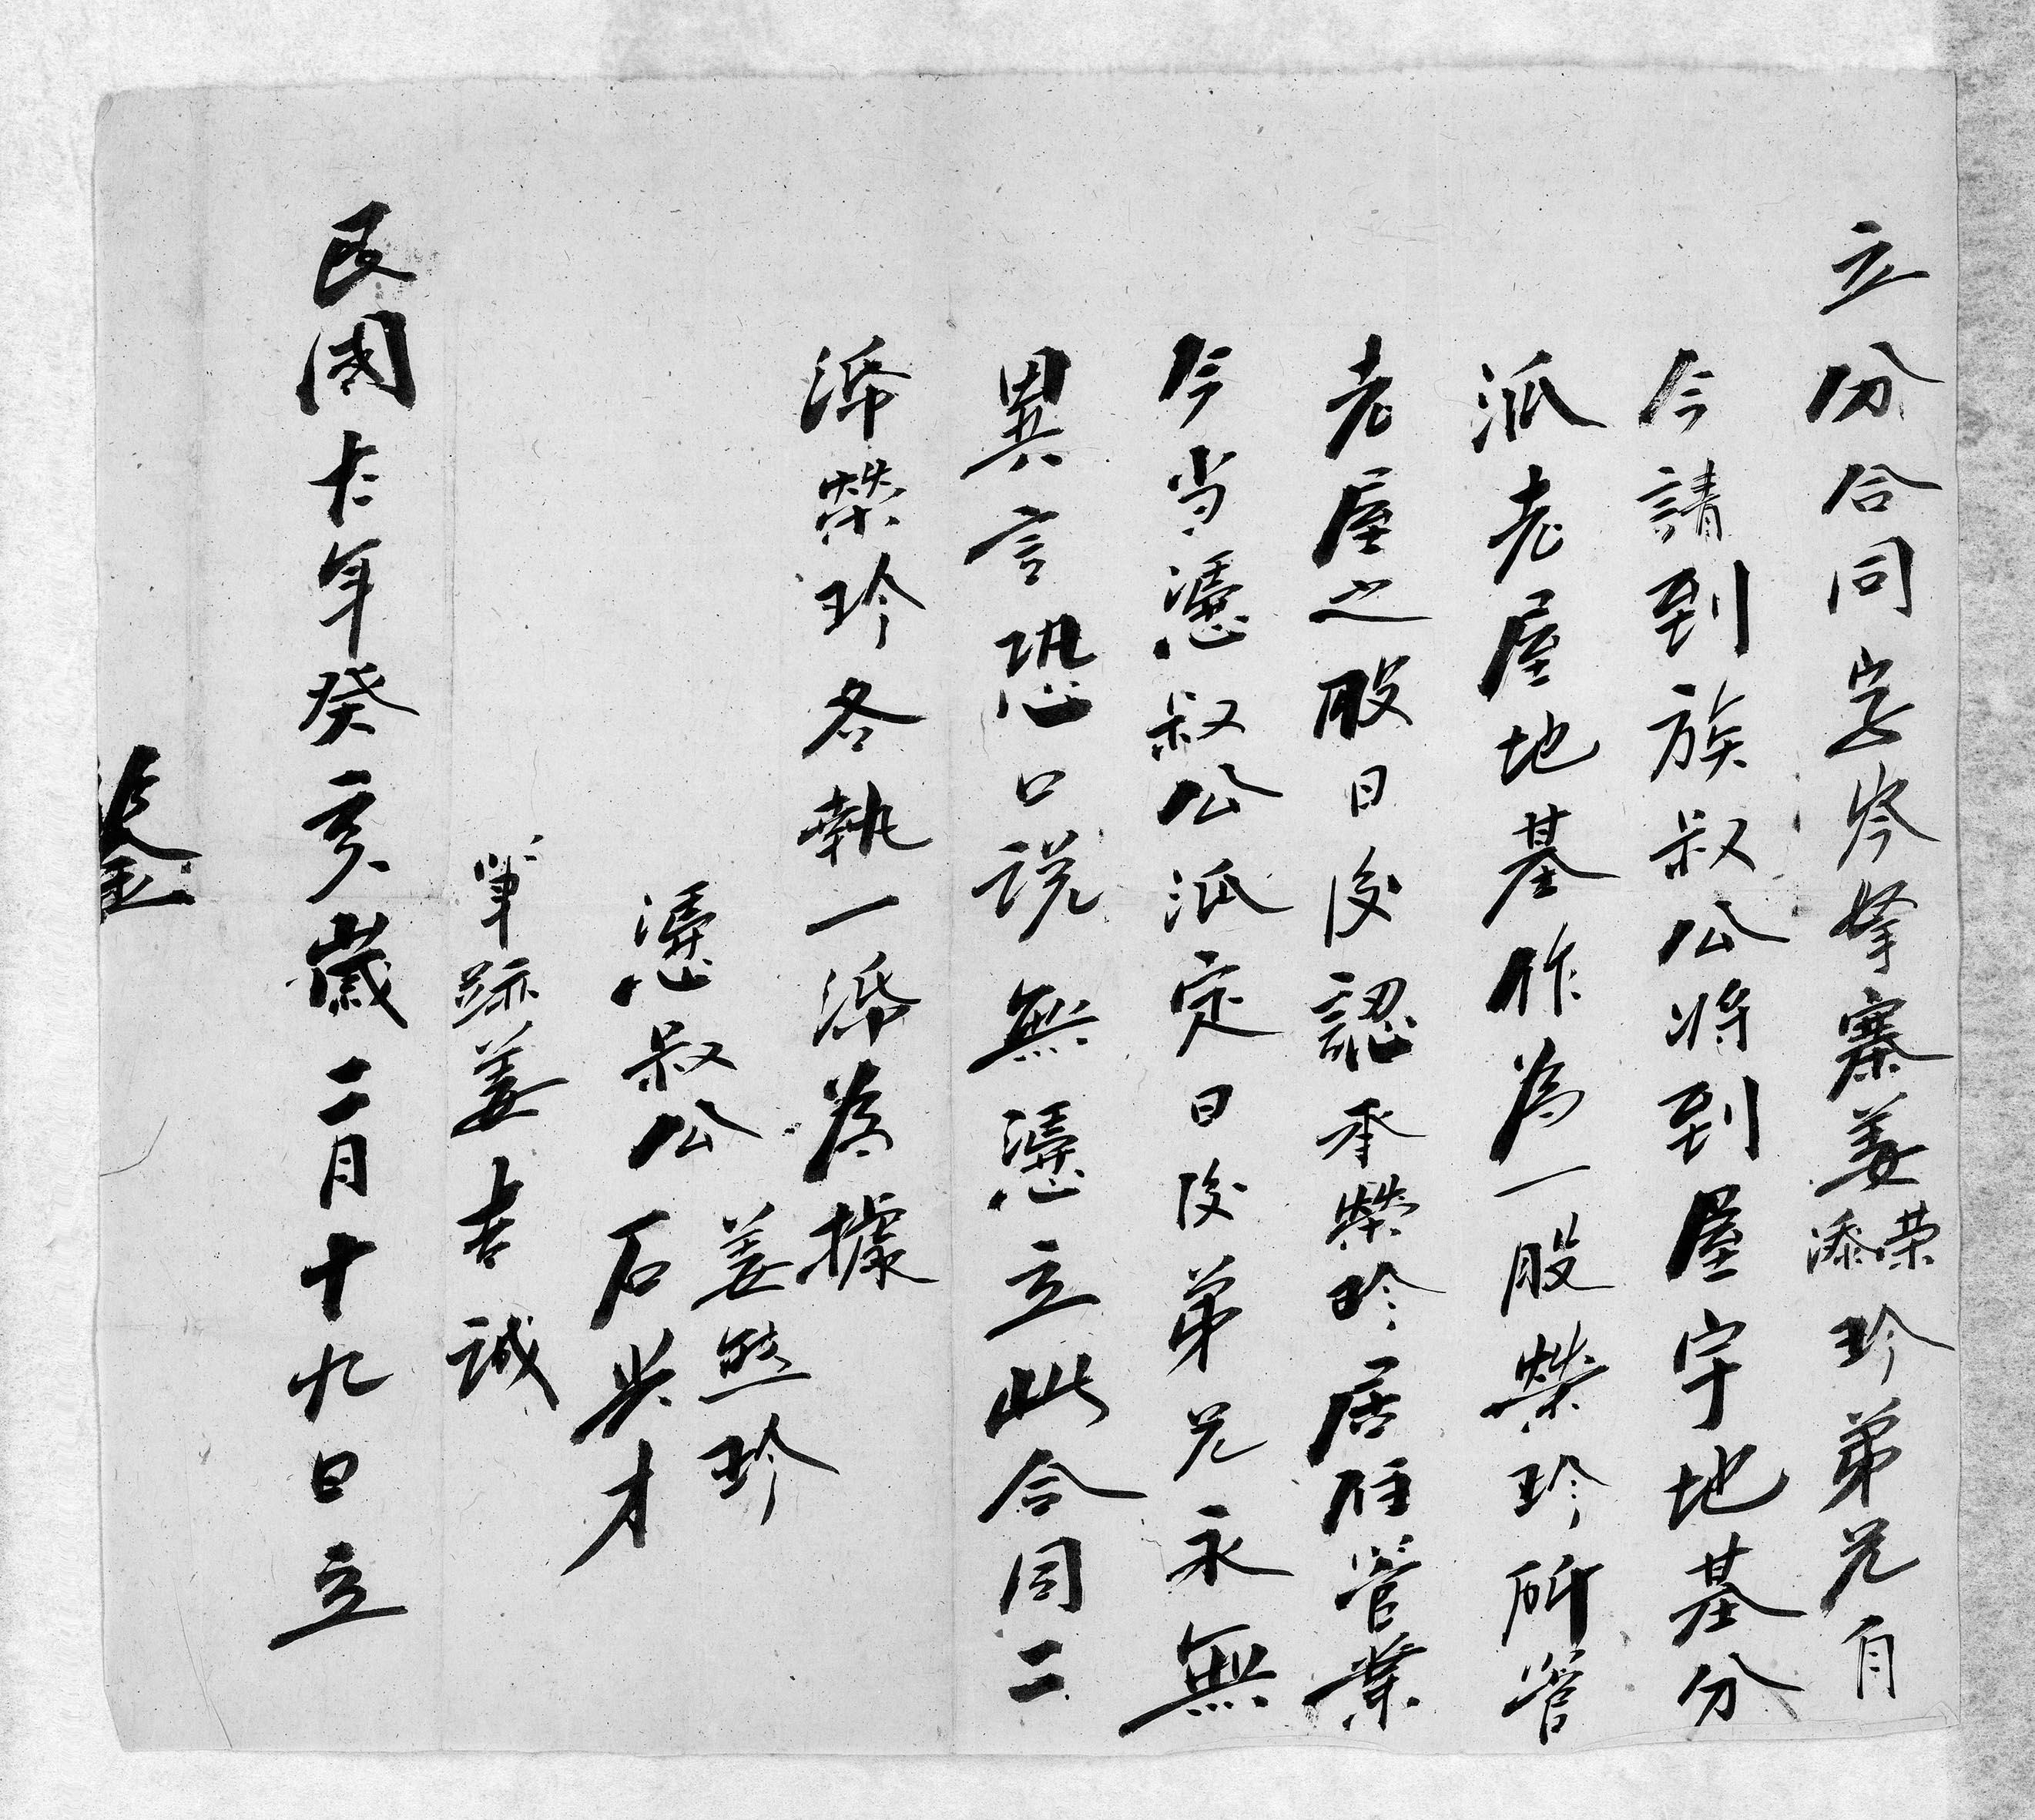 立份合同字岑拏寨姜荣添珍弟兄自
今請到族叔公將到屋宇地基分
派老屋地基作為一股榮珍所管
老屋之股日後認承榮珍居住管業
今当憑叔公派定日後弟兄永無
異言恐口説無憑立此合同二
𥿄榮珍各執一𥿄為據
憑叔公姜熙珍
石興才
筆跡姜吉誠
民國十二年癸亥歲二月十九日立